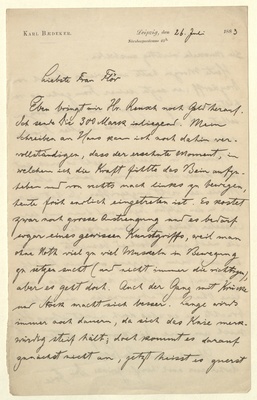 KARL BAEDEKER.
Leipzig, den 26. Juli 1883
Liebste Frau Flör
Eben bringt mir Hr. Reusch noch Geld herauf.
Ich sende Die 300 Mark inliegend. Mein
Schreiben an Hans kann ich noch dahin ver-
vollständigen, dass der ersehnte Moment, in
welchem ich die Kraft fühlte das Bein aufzu-
heben und von rechts nach links zu bewegen,
heute früh endlich eingetreten ist. Es kostet
zwar noch grosse Anstrengung und es bedarf
sogar eines gewissen Kunstgriffs, weil man
ohne Noth viel zu viel Muskeln in Bewegung
zu setzen sucht (und nicht immer die richtigen)
aber es geht doch. Auch der Gang mit Krücke
und Stock macht sich besser. Lange wird's
immer noch dauern, da sich das Knie merk-
würdig steif hält; doch kommt es darauf
zunächst nicht an, jetzt heisst es zuerst